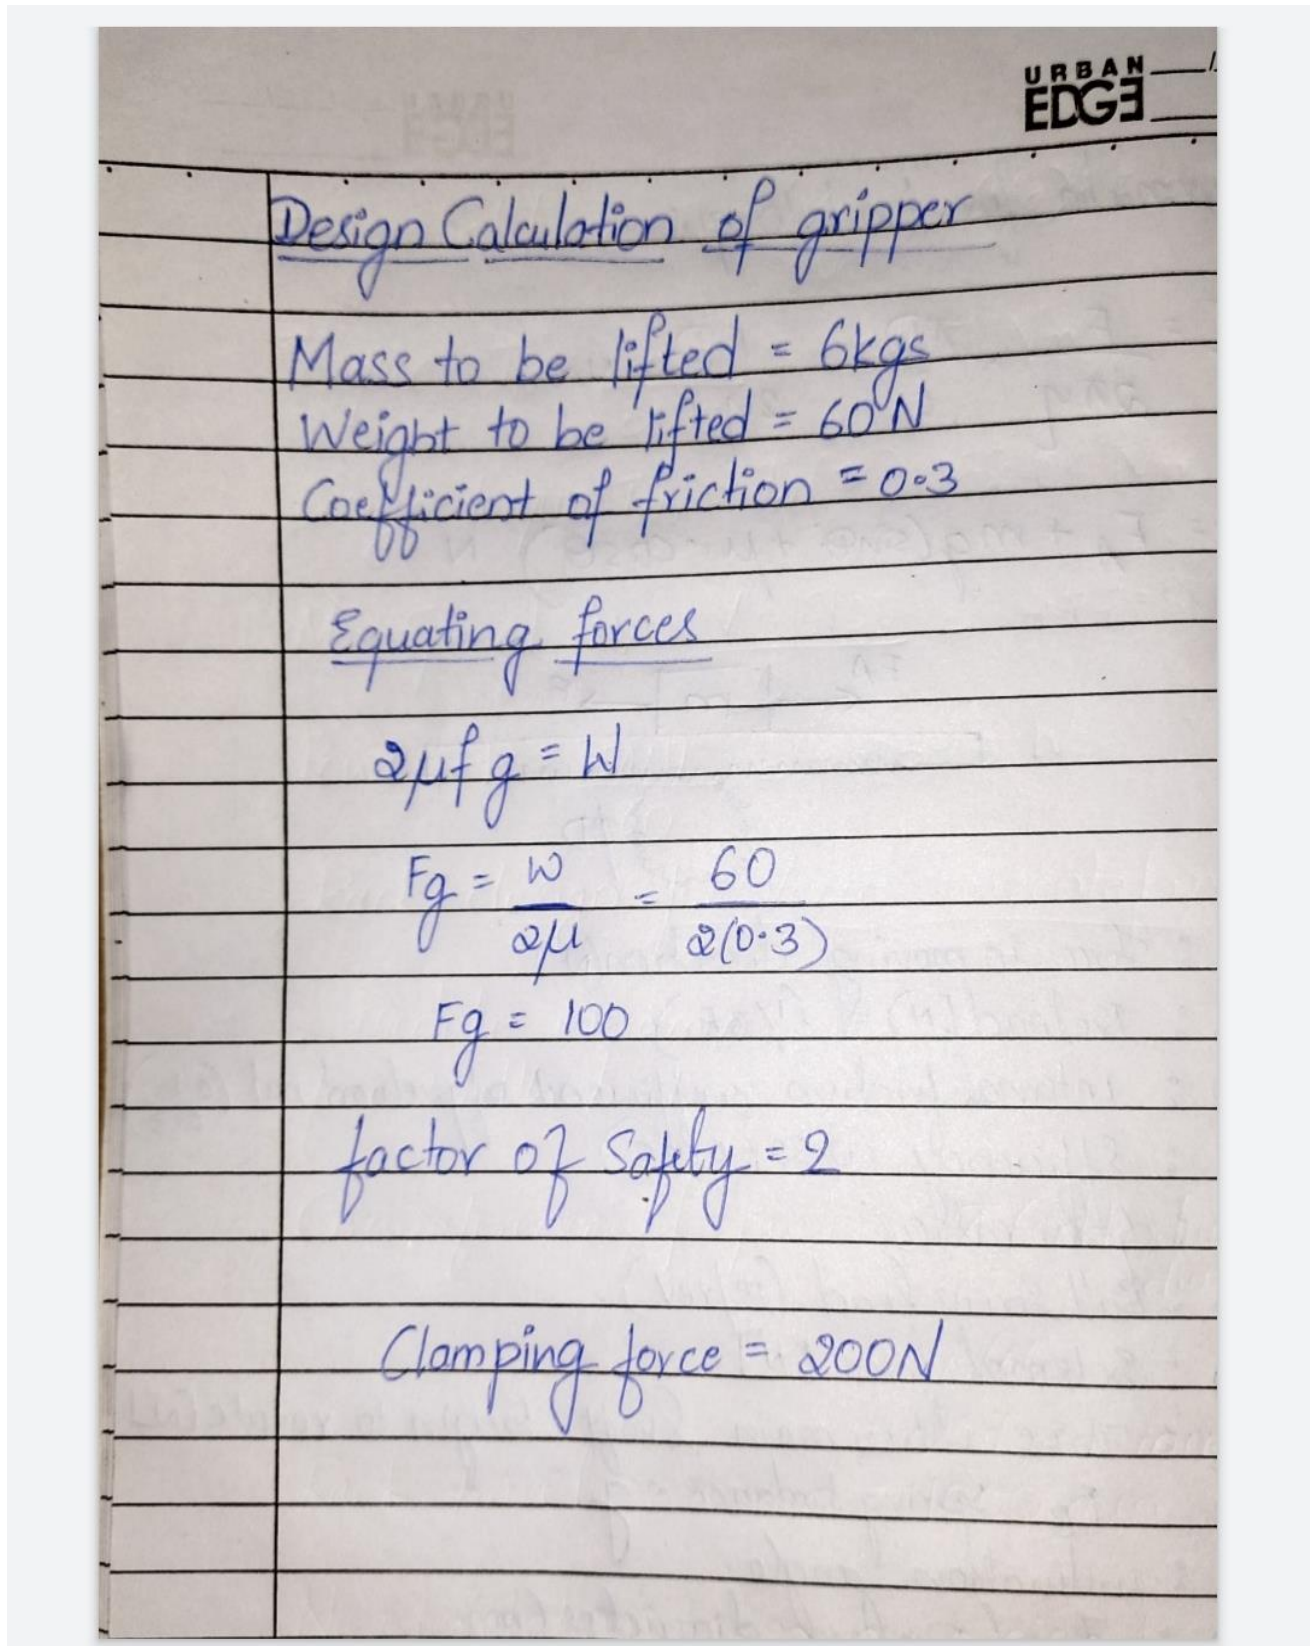 URBAN
EDGE
Design Calculation of gripper
Mass to be lifted = 6kgs
Weight to be lifted = 60N
Coefficient of friction = 0.3
Equating forces
2μfg = W
Fg = W/2μ = 60/2(0.3)
Fg = 100
factor of Safety = 2
Clamping force = 200N